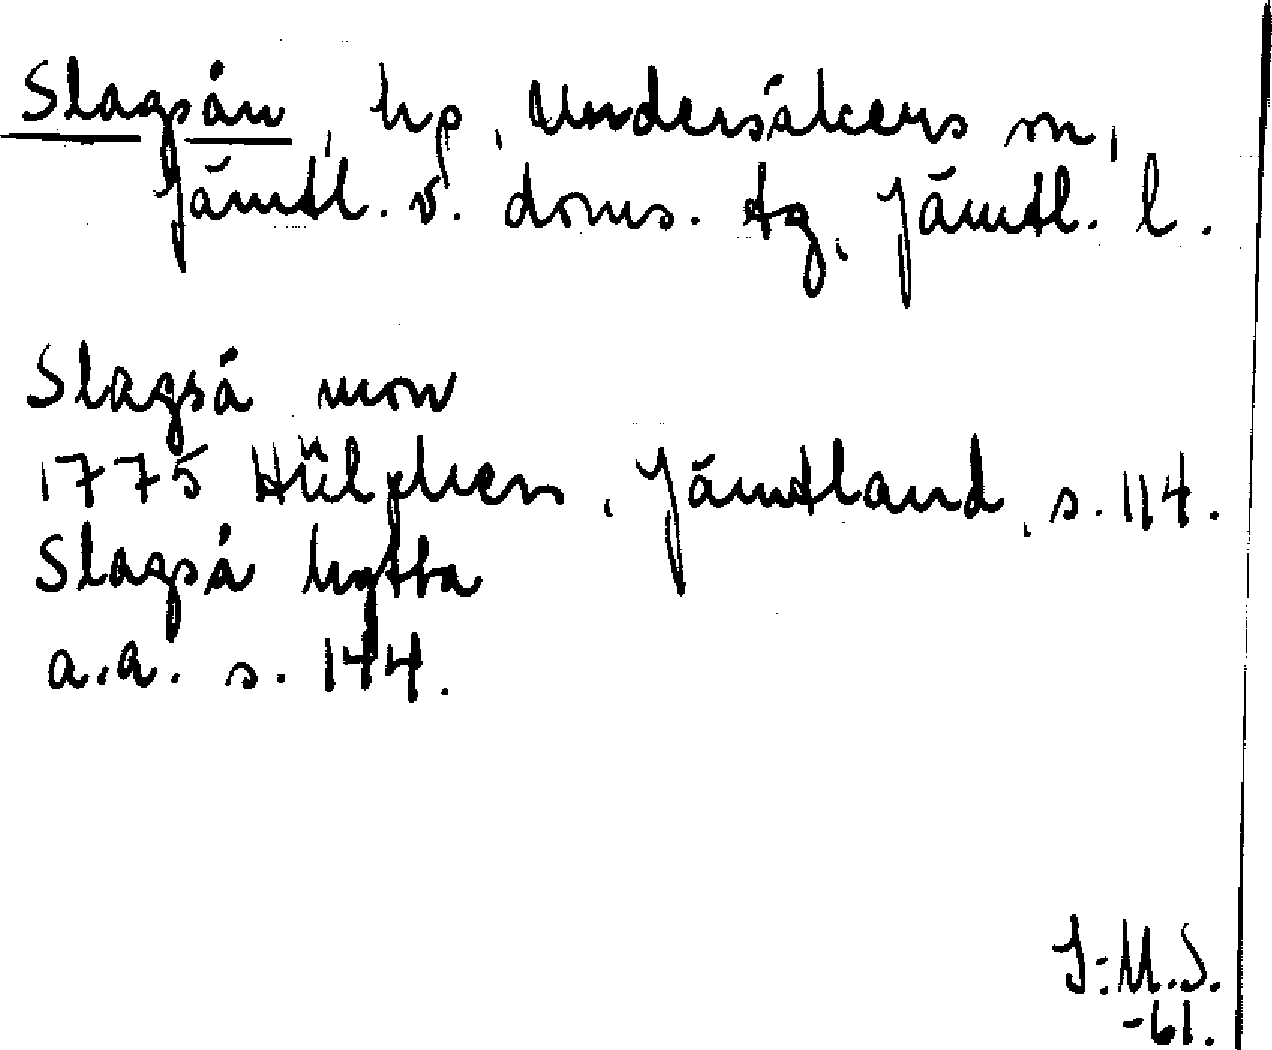 Slagsån, hp, Undersåkers sn,
Jämtl. v. doms. tg, Jämtl. l.
Slagså mon
1775 Hülphers, Jämtland, s. 114.
Slagså hytta
a.a. s. 144.
I:M.S.
-61.